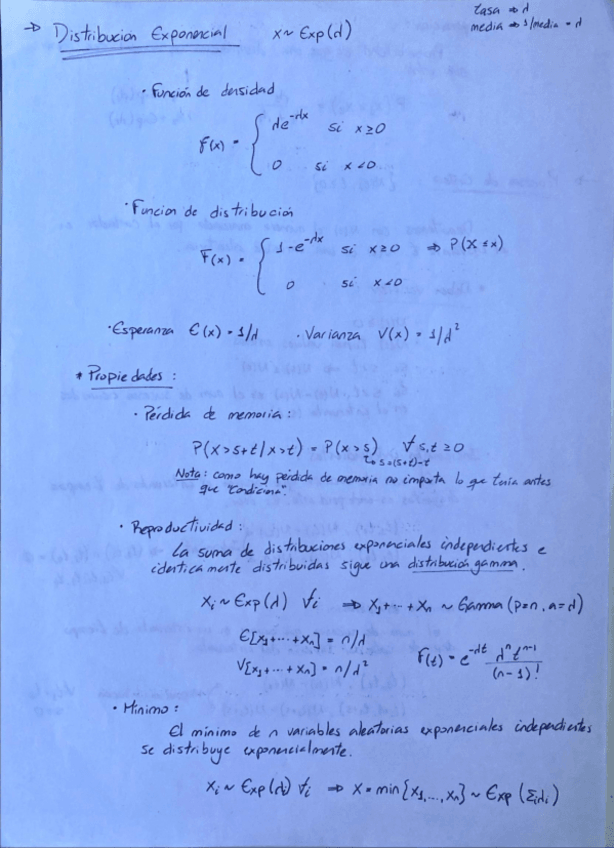 tasa ⇒ λ
→ Distribución Exponencial x ~ Exp(λ) media ⇒ 1/media = λ
· Función de densidad
f(x) = { λe^-λx si x ≥ 0
0 si x < 0
· Funcion de distribución
F(x) = { 1 - e^-λx si x ≥ 0 ⇒ P(X ≤ x)
0 si x < 0
· Esperanza E(x) = 1/λ · Varianza V(x) = 1/λ²
* Propiedades :
· Pérdida de memoria :
P(x > s+t / x > t) = P(x > s) ∀ s,t ≥ 0
↳ s = (s+t) - t
Nota : como hay pérdida de memoria no importa lo que tenia antes
que "condiciona".
· Reproductividad :
La suma de distribuciones exponenciales independientes e
identicamente distribuidas sigue una distribución gamma.
Xi ~ Exp(λ) ∀i ⇒ X1 + ··· + Xn ~ Gamma (p=n, a=λ)
E[X1 + ··· + Xn] = n/λ
V[X1 + ··· + Xn] = n/λ² f(t) = e^-λt λ^n t^n-1 / (n-1)!
· Mínimo :
El mínimo de n variables aleatorias exponenciales independientes
se distribuye exponencialmente.
Xi ~ Exp(λi) ∀i ⇒ X = min{X1, ..., Xn} ~ Exp(Σi λi)